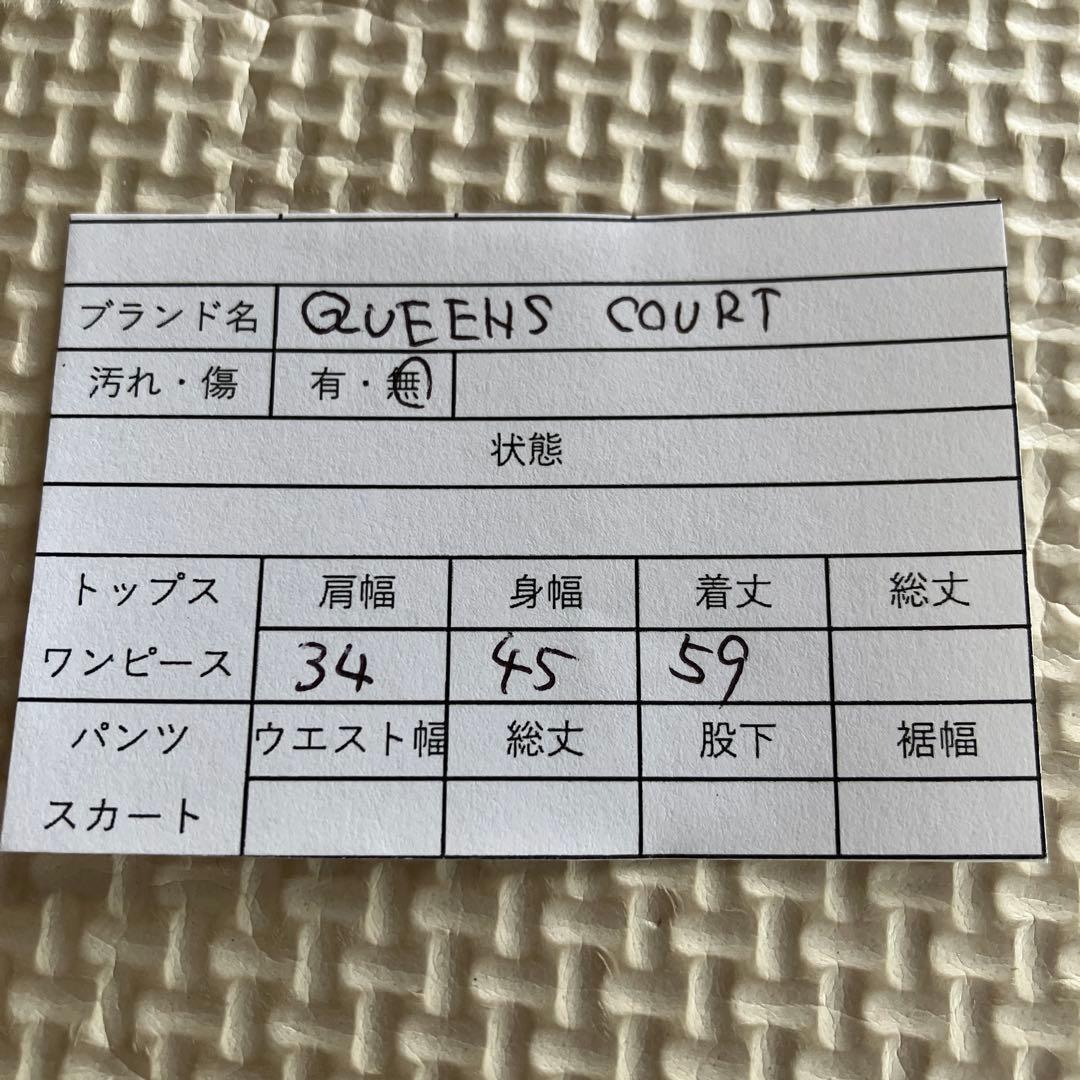 ブランド名 QUEENS COURT
汚れ・傷 有・無
状態
トップス 肩幅 身幅 着丈 総丈
ワンピース 34 45 59
パンツ ウエスト幅 総丈 股下 裾幅
スカート